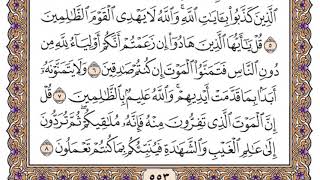 ٱلَّذِينَ كَذَّبُوا۟ بِـَٔايَٰتِ ٱللَّهِ ۚ وَٱللَّهُ لَا يَهْدِى ٱلْقَوْمَ ٱلظَّٰلِمِينَ
٥ قُلْ يَٰٓأَيُّهَا ٱلَّذِينَ هَادُوٓا۟ إِن زَعَمْتُمْ أَنَّكُمْ أَوْلِيَآءُ لِلَّهِ مِن
دُونِ ٱلنَّاسِ فَتَمَنَّوُا۟ ٱلْمَوْتَ إِن كُنتُمْ صَٰدِقِينَ ٦ وَلَا يَتَمَنَّوْنَهُۥٓ
أَبَدًۢا بِمَا قَدَّمَتْ أَيْدِيهِمْ ۚ وَٱللَّهُ عَلِيمٌۢ بِٱلظَّٰلِمِينَ ٧ قُلْ
إِنَّ ٱلْمَوْتَ ٱلَّذِى تَفِرُّونَ مِنْهُ فَإِنَّهُۥ مُلَٰقِيكُمْ ۖ ثُمَّ تُرَدُّونَ
إِلَىٰ عَٰلِمِ ٱلْغَيْبِ وَٱلشَّهَٰدَةِ فَيُنَبِّئُكُم بِمَا كُنتُمْ تَعْمَلُونَ ٨
٥٥٣